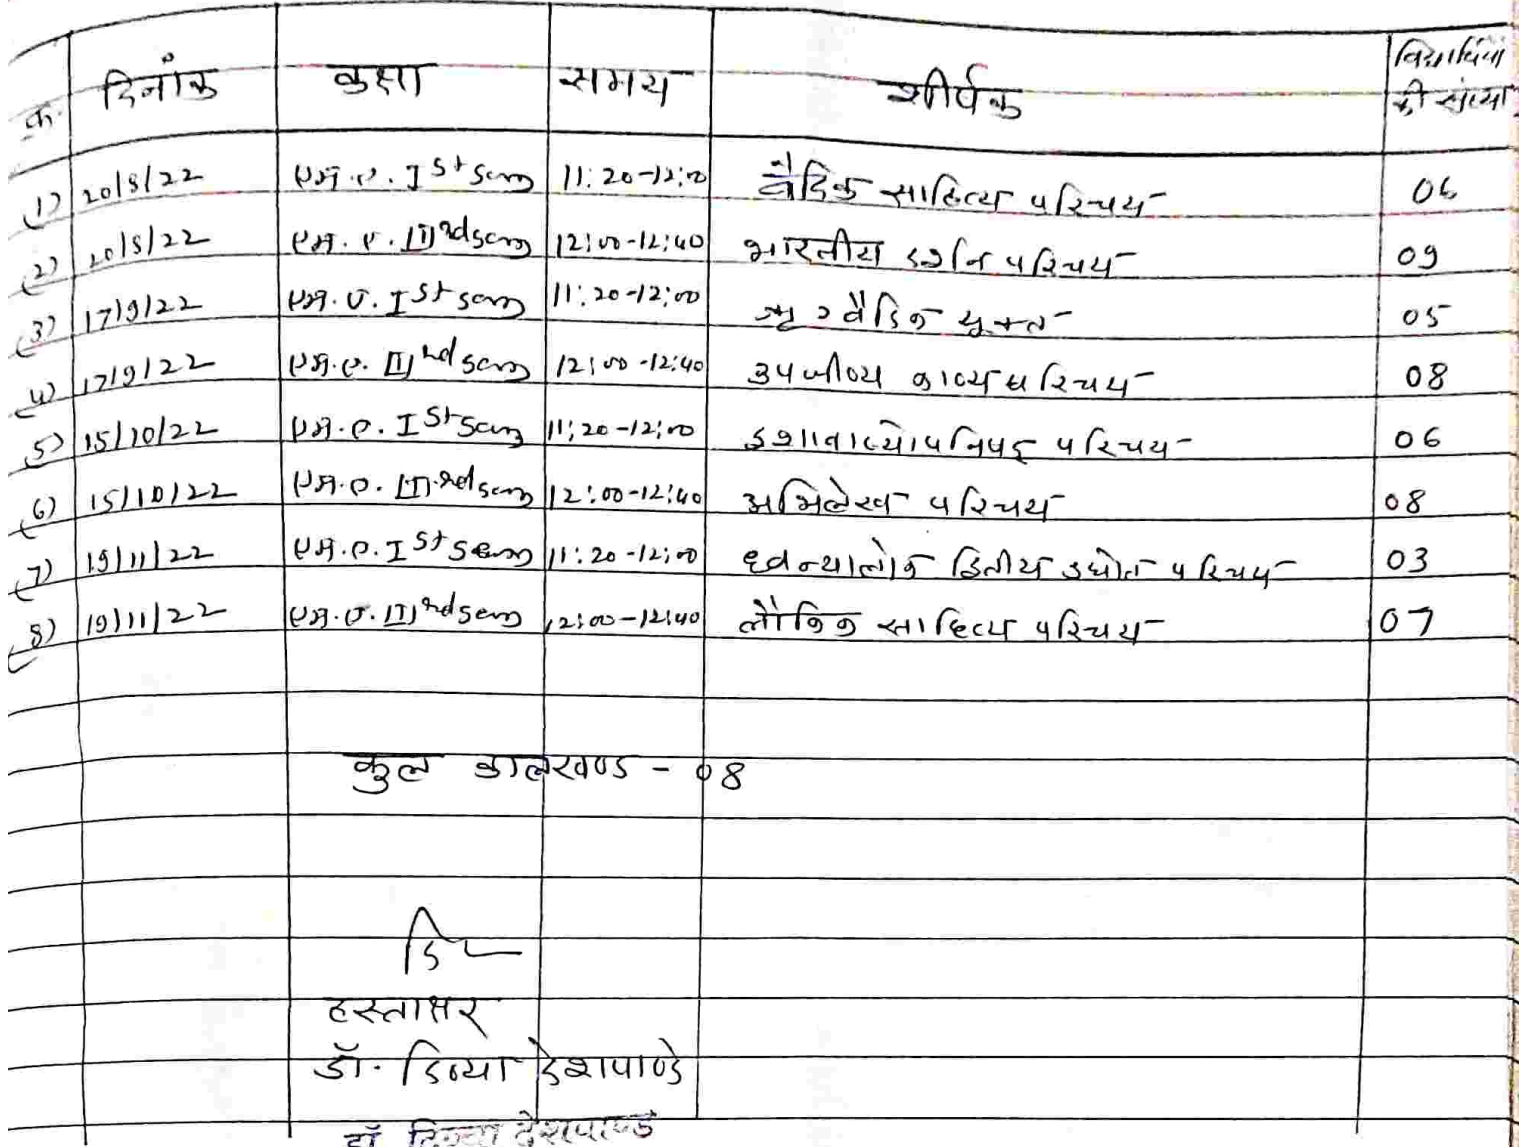 क्र. दिनांक कक्षा समय शीर्षक विद्यार्थियों की संख्या
(1) 20/8/22 एम.ए. Ist Sem 11:20-12:00 वैदिक साहित्य परिचय 06
(2) 20/8/22 एम.ए. IIIrd sem 12:00-12:40 भारतीय दर्शन परिचय 09
(3) 17/9/22 एम.ए. Ist sem 11:20-12:00 ऋग्वैदिक सूक्त 05
(4) 17/9/22 एम.ए. IIIrd sem 12:00-12:40 उपजीव्य काव्य परिचय 08
(5) 15/10/22 एम.ए. Ist Sem 11:20-12:00 इशावास्योपनिषद् परिचय 06
(6) 15/10/22 एम.ए. IIIrd sem 12:00-12:40 अभिलेख परिचय 08
(7) 19/11/22 एम.ए. Ist Sem 11:20-12:00 ध्वन्यालोक द्वितीय उद्योत परिचय 03
(8) 19/11/22 एम.ए. IIIrd sem 12:00-12:40 लौकिक साहित्य परिचय 07
कुल कालखण्ड - 08
हस्ताक्षर
डॉ. दिव्या देशपाण्डे
डॉ. दिव्या देशपाण्डे